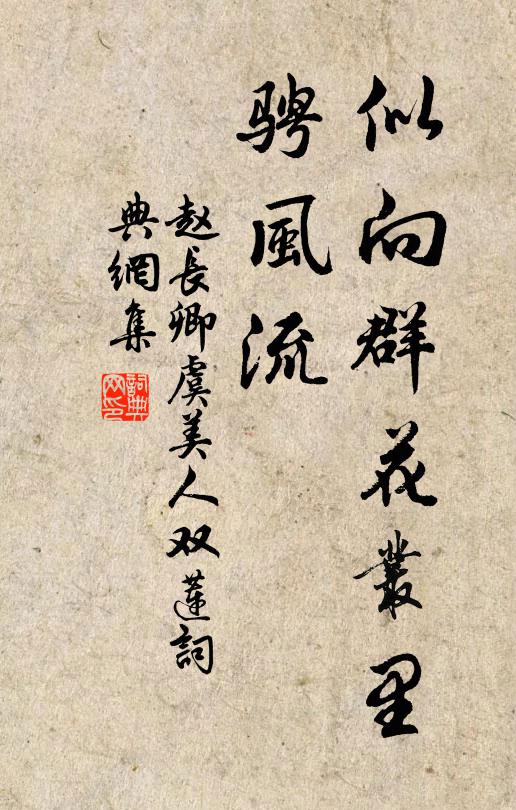 似向群花叢里
骋風流
赵長卿虞美人双蓮詞
典網集
詞典網印